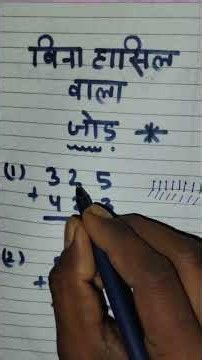 बिना हासिल
वाला
जोड़ *
(1) 3 2 5
+ 4
(2)
+